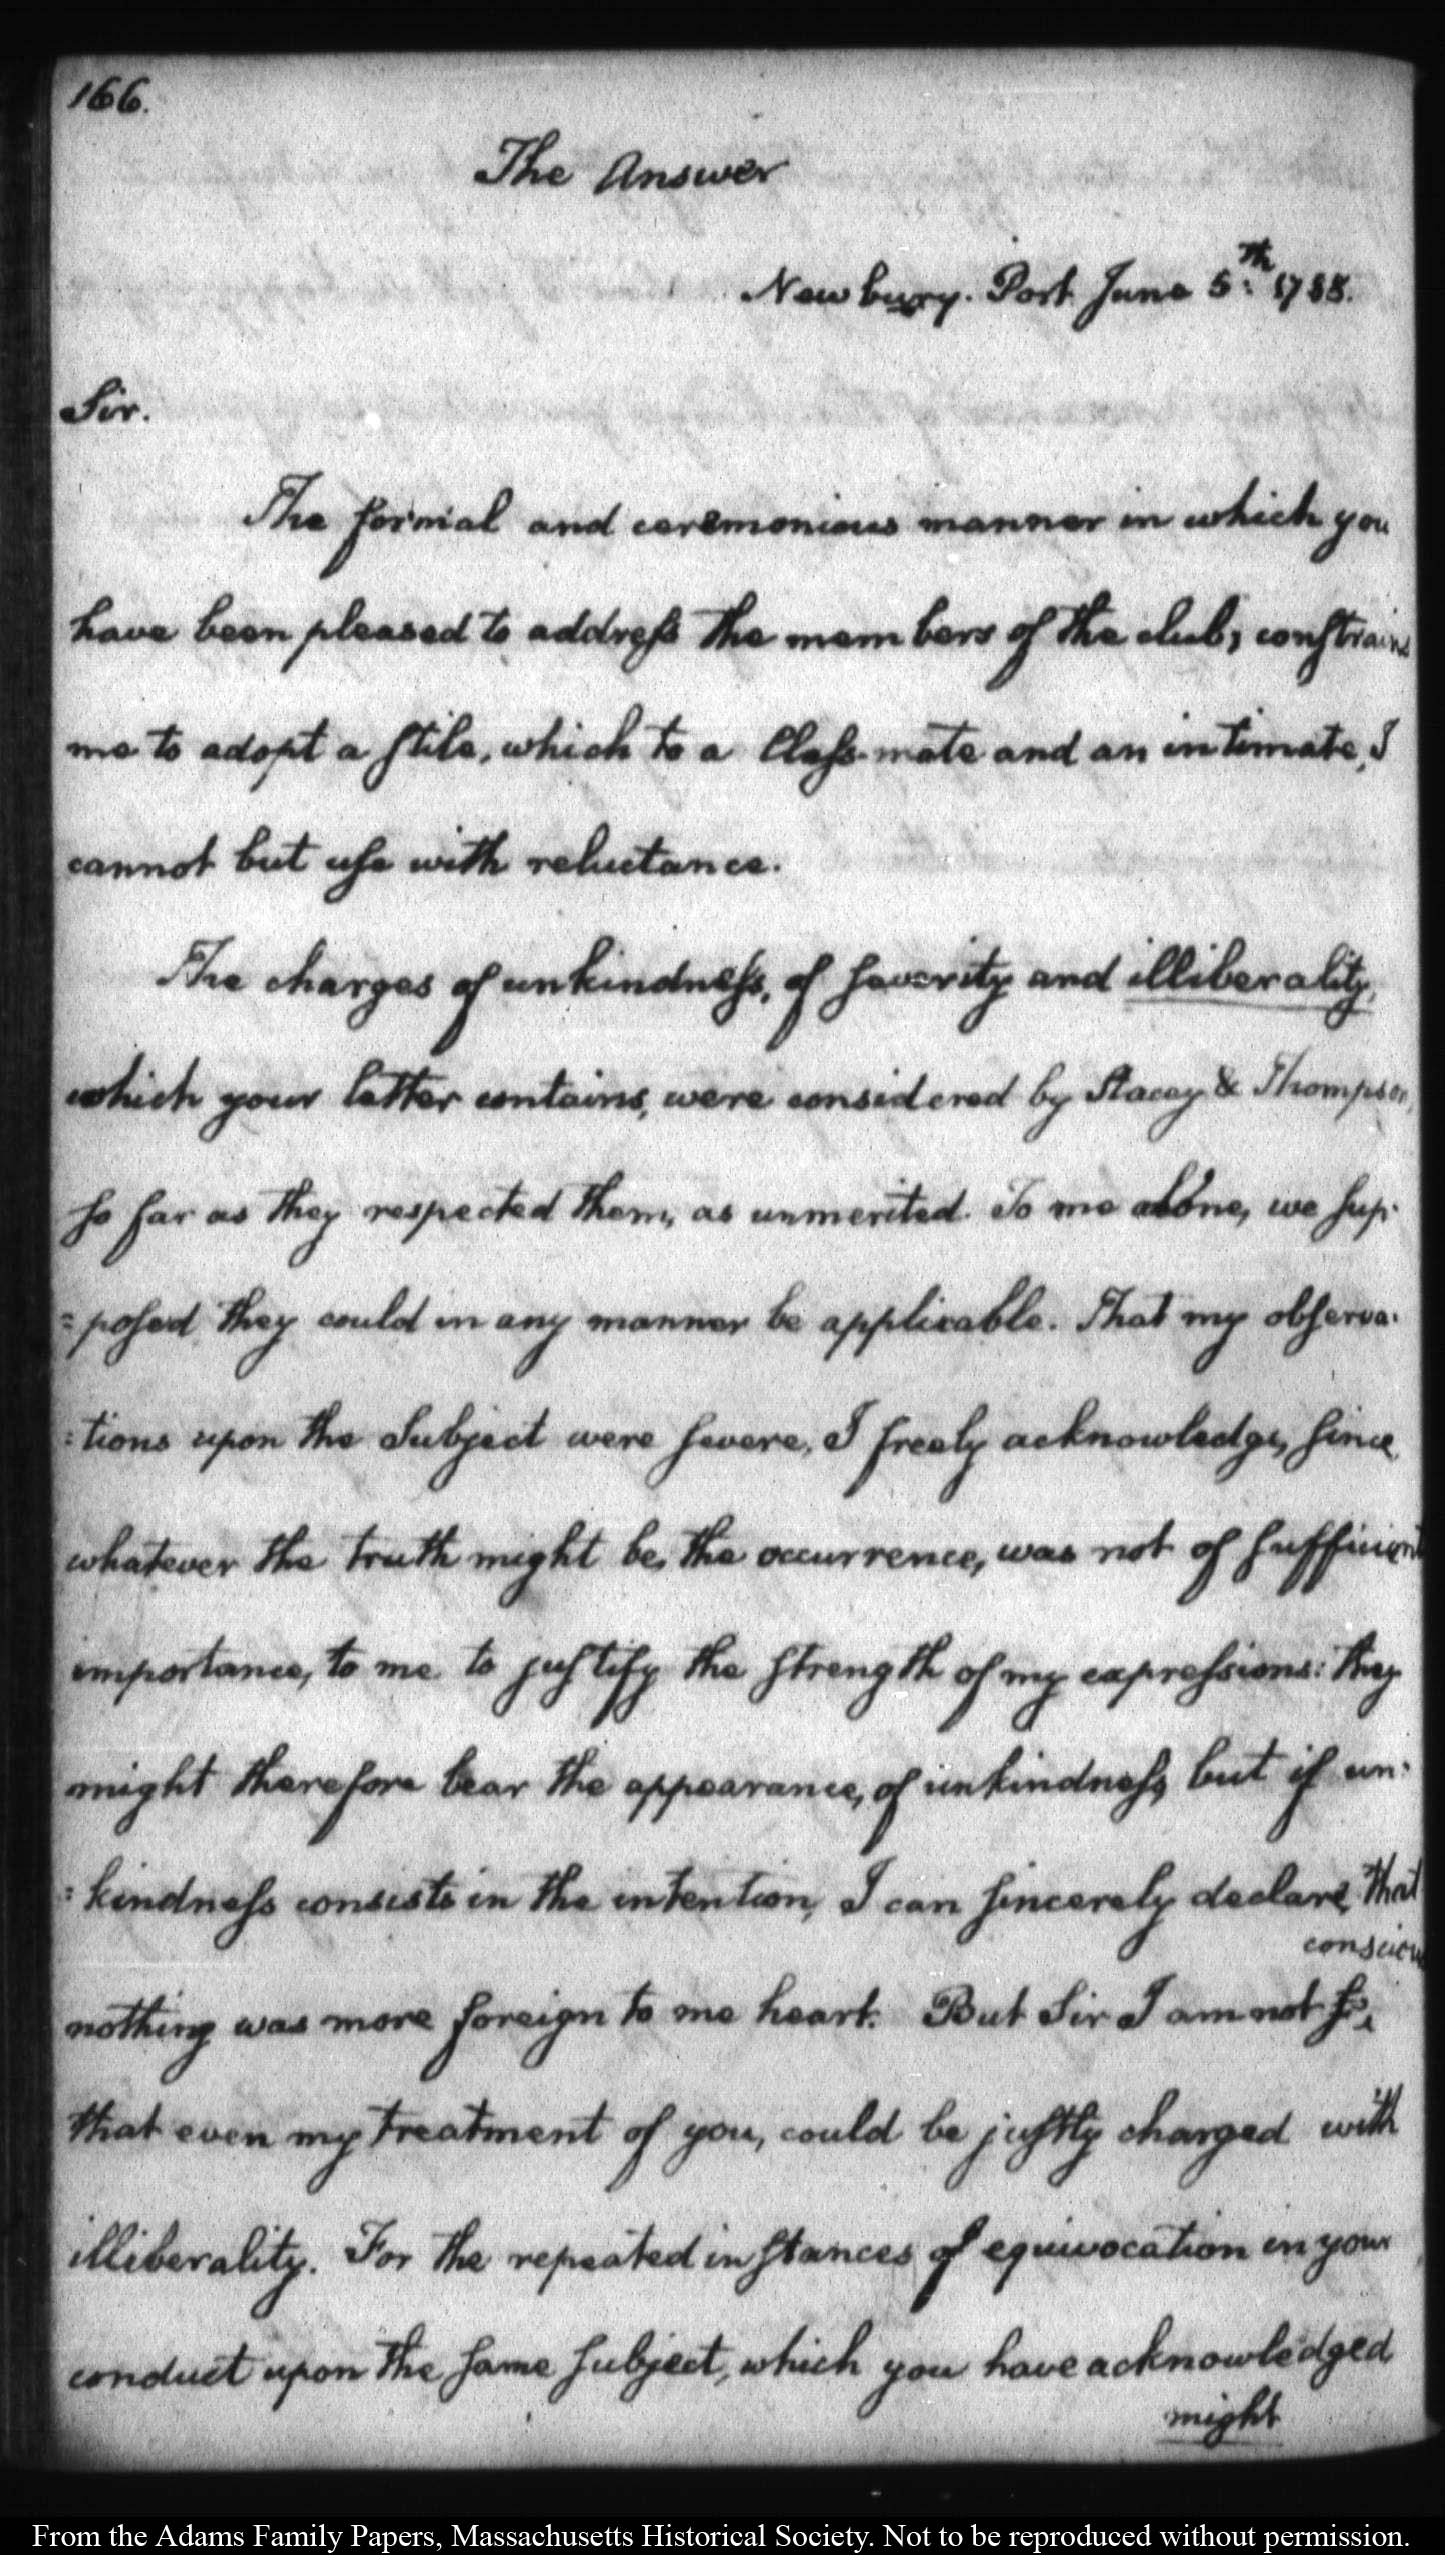 166.
The Answer
Newbury-Port June 5th: 1788.
Sir.
The formal and ceremonious manner in which you
have been pleased to address the members of the club, constrains
me to adopt a stile, which to a Class-mate and an intimate, I
cannot but use with reluctance.
The charges of unkindness, of severity and illiberality,
which your letter contains, were considered by Stacey & Thompson,
so far as they respected them, as unmerited. To me alone, we sup-
=posed they could in any manner be applicable. That my observa-
:tions upon the Subject were severe, I freely acknowledge, since
whatever the truth might be, the occurrence, was not of sufficient
importance, to me to justify the strength of my expressions: they
might therefore bear the appearance, of unkindness, but if un-
:kindness consists in the intention, I can sincerely declare, that
nothing was more foreign to me heart. But Sir I am not so
that even my treatment of you, could be justly charged with
illiberality. For the repeated instances of equivocation in your
conduct upon the same subject, which you have acknowledged
might
From the Adams Family Papers, Massachusetts Historical Society. Not to be reproduced without permission.